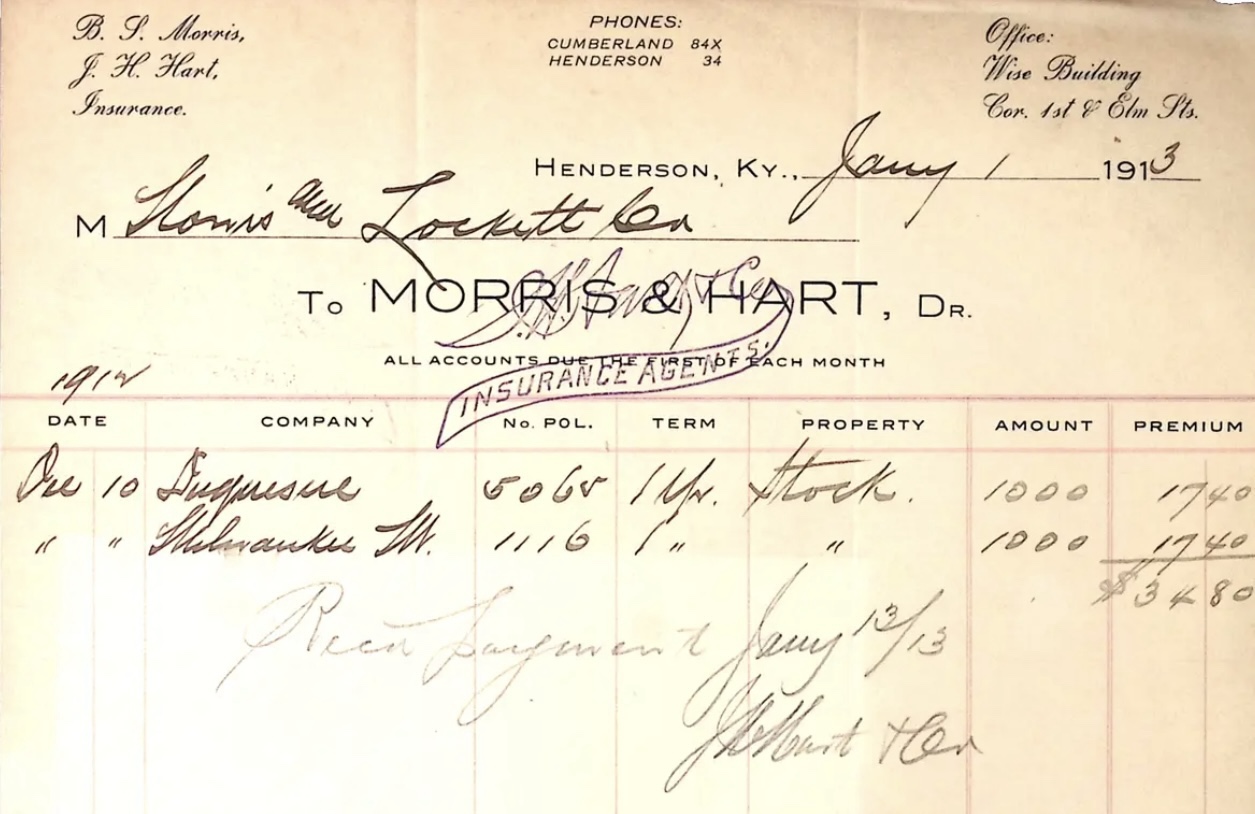 B. S. Morris,
J. H. Hart,
Insurance.
PHONES:
CUMBERLAND 84X
HENDERSON 34
Office:
Wise Building
Cor. 1st & Elm Sts.
HENDERSON, KY., Jany 1 1913
M Lockett Co
TO MORRIS & HART, DR.
J. H. Hart & Co
INSURANCE AGENTS.
ALL ACCOUNTS DUE THE FIRST OF EACH MONTH
1912
DATE COMPANY No. POL. TERM PROPERTY AMOUNT PREMIUM
Dec 10 Duquesne 5065 1 Yr. Stock. 1000 1740
" " Milwaukee M. 1116 1 " " 1000 1740
$3480
Recd payment Jany 13/13
J H Hart & Co